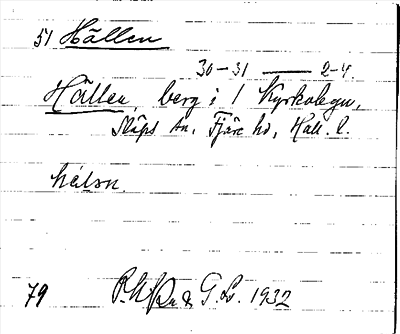 51 Hällen
30-31 — 2-4.
Hällen, berg i 1 Kyrkobyn,
Släps sn, Fjäre hd, Hall. l.
hɛ̀lən.
79 & G.L. 1932